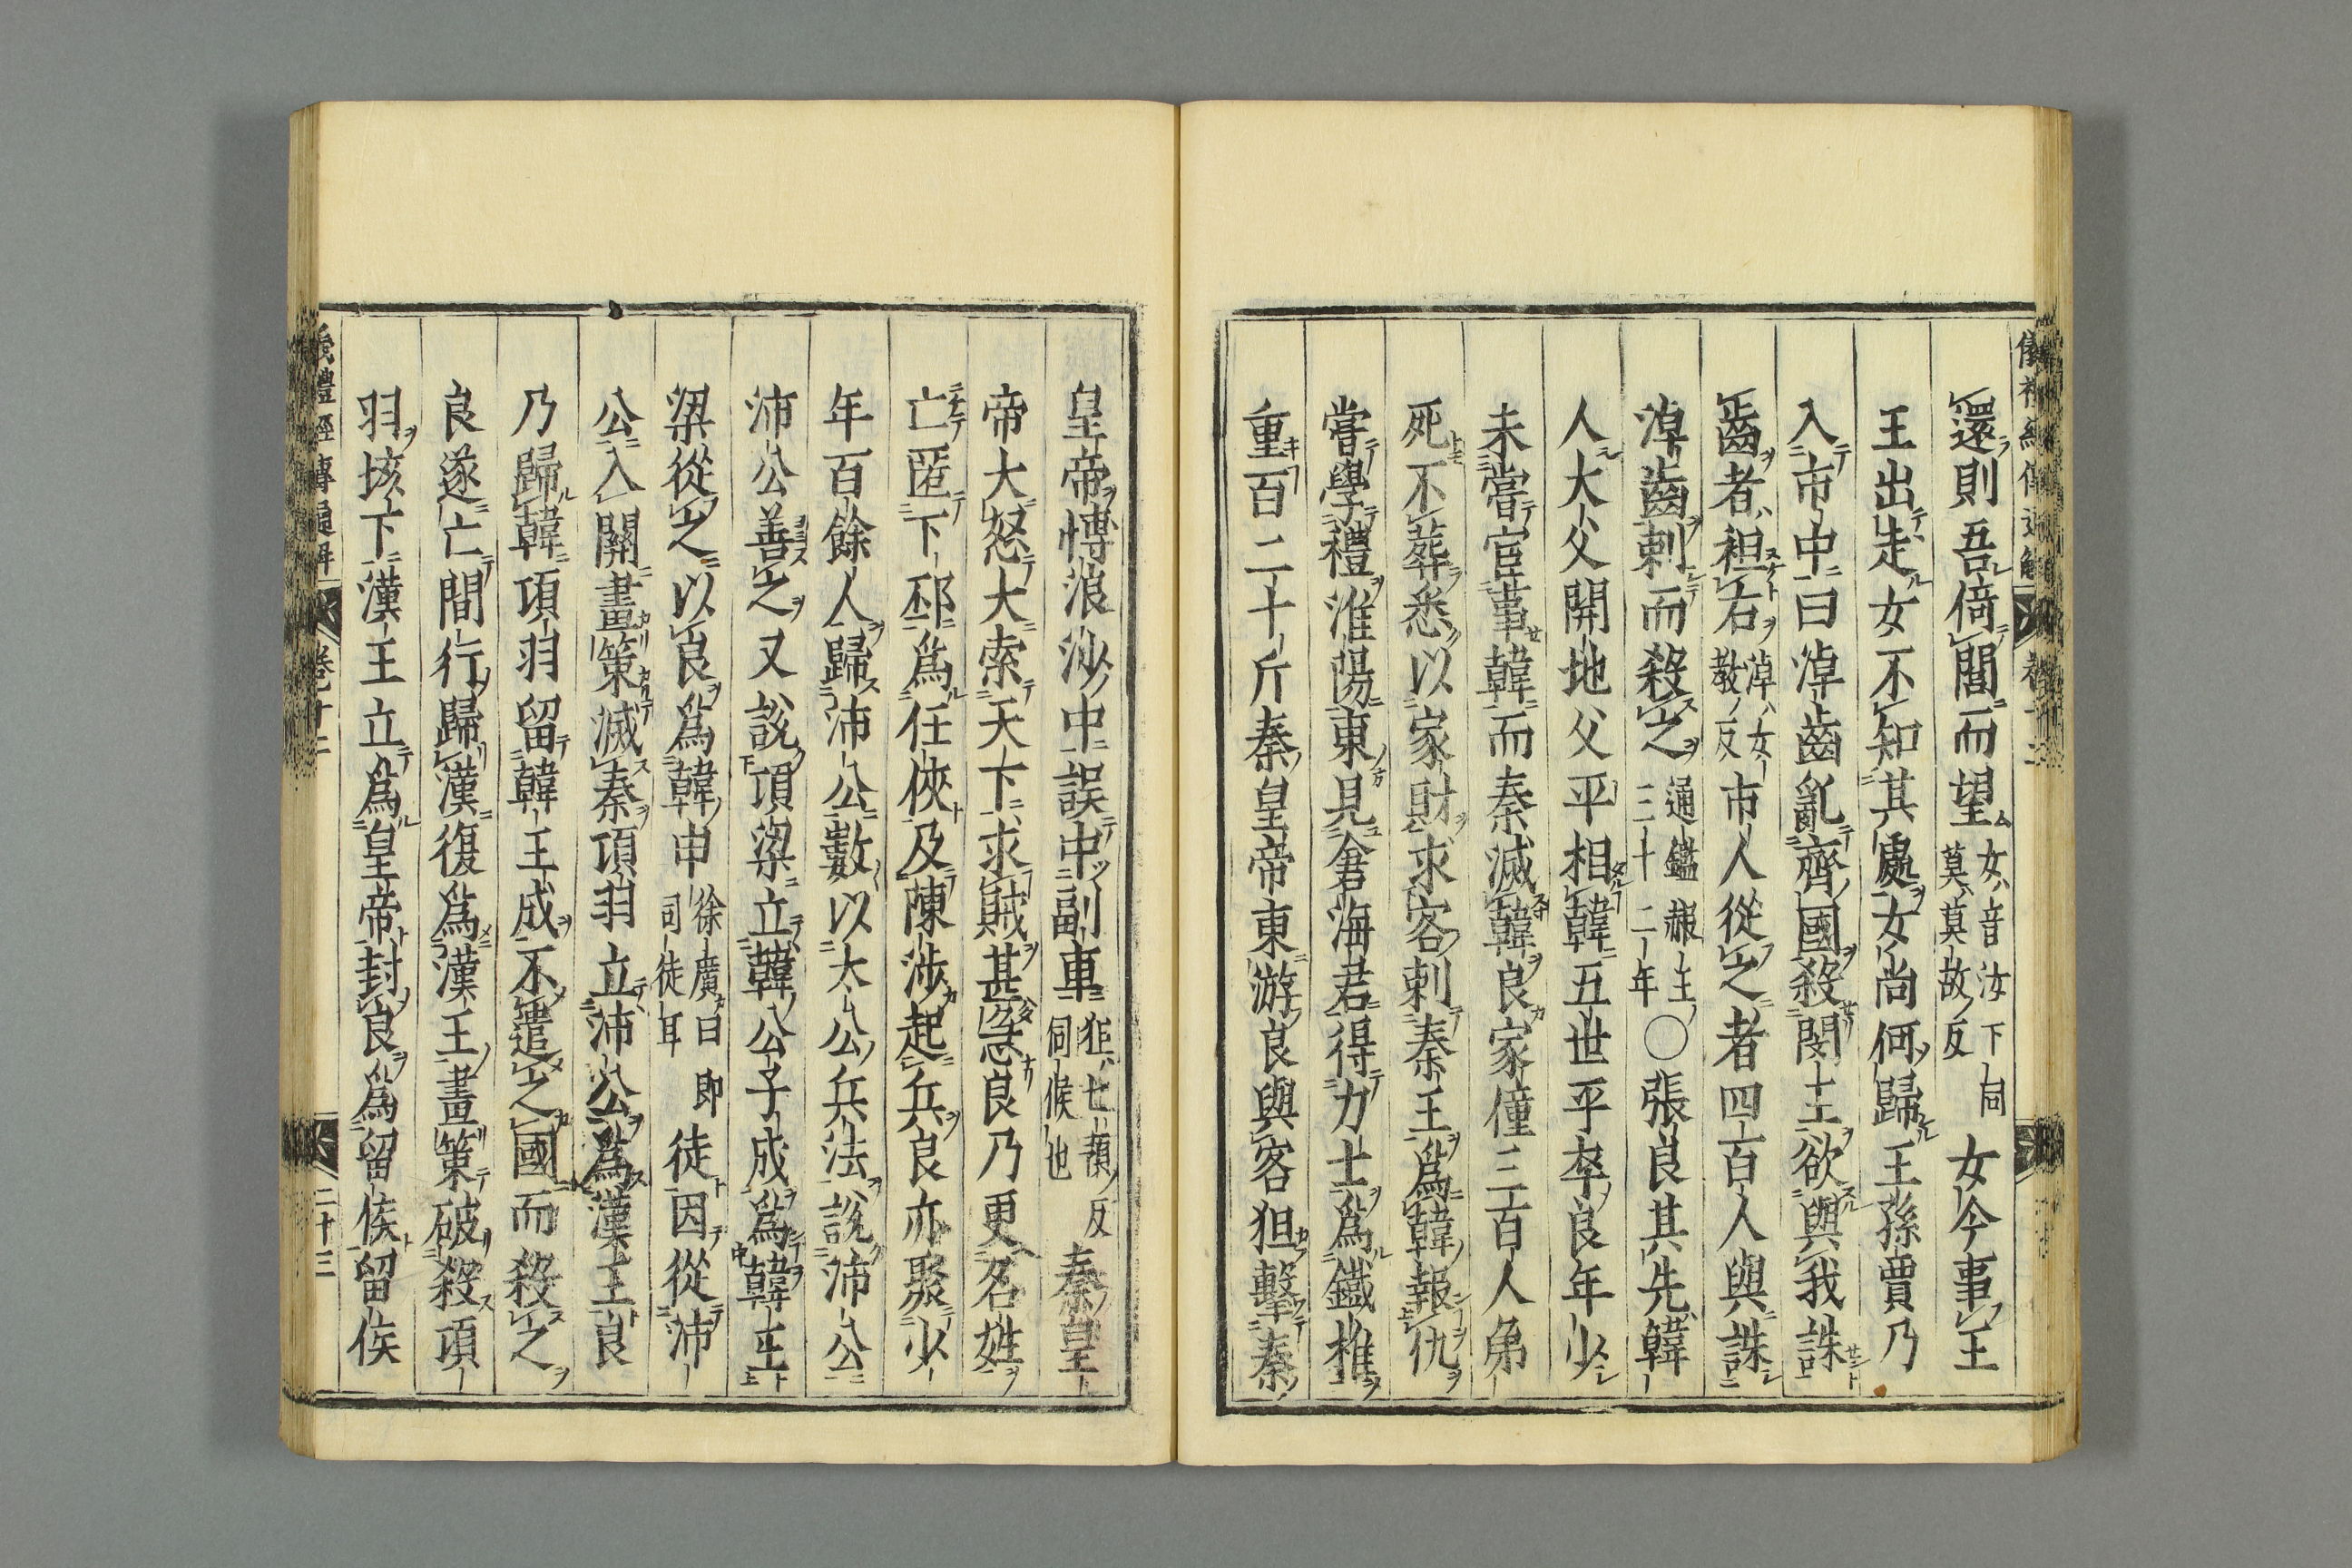 還則吾倚閭而望女音汝下同莫莫故反女今事王
王出走女不知其處女尚何歸王孫賈乃
入市中曰淖齒亂齊國殺閔王欲與我誅
齒者袒右淖女教反市人從之者四百人與誅
淖齒刺而殺之通鑑赧王三十二年〇張良其先韓
人大父開地父平相韓五世平卒良年少
未嘗宦事韓而秦滅韓良家僮三百人弟
死不葬悉以家財求客刺秦王爲韓報仇
嘗學禮淮陽東見倉海君得力士爲鐵椎
重百二十斤秦皇帝東游良與客狙擊秦
皇帝博浪沙中誤中副車狙七預反伺候也秦皇
帝大怒大索天下求賊甚急良乃更名姓
亡匿下邳爲任俠及陳涉起兵良亦聚少
年百餘人歸沛公數以太公兵法說沛公
沛公善之又說項梁立韓公子成爲韓王
梁從之以良爲韓申徐廣曰即司徒耳徒因從沛
公入關畫策滅秦項羽立沛公爲漢王良
乃歸韓項羽留韓王成不遣之國而殺之
良遂亡間行歸漢復爲漢王畫策破殺項
羽垓下漢王立爲皇帝封良爲留侯留侯
儀禮經傳通解 卷十二 二十三